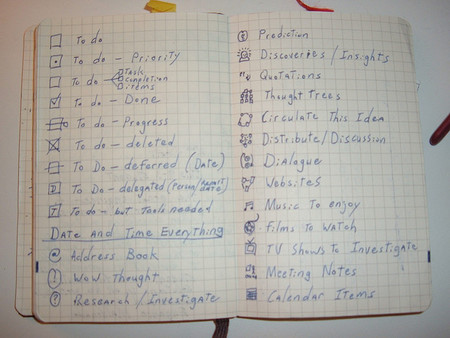 To do
To do - Priority
To do Task
Completion
items
To do - Done
To do - Progress
To do - deleted
To Do - deferred (Date)
D To Do - delegated (Person/ date)
T To do - but Tools needed
Date And Time Everything
@ Address Book
! Wow Thought
? Research / Investigate
Prediction
Discoveries / Insights
Quotations
Thought Trees
Circulate This Idea
Distribute/Discussion
Dialogue
Websites
Music To enjoy
Films To Watch
TV Shows to Investigate
Meeting Notes
Calendar Items